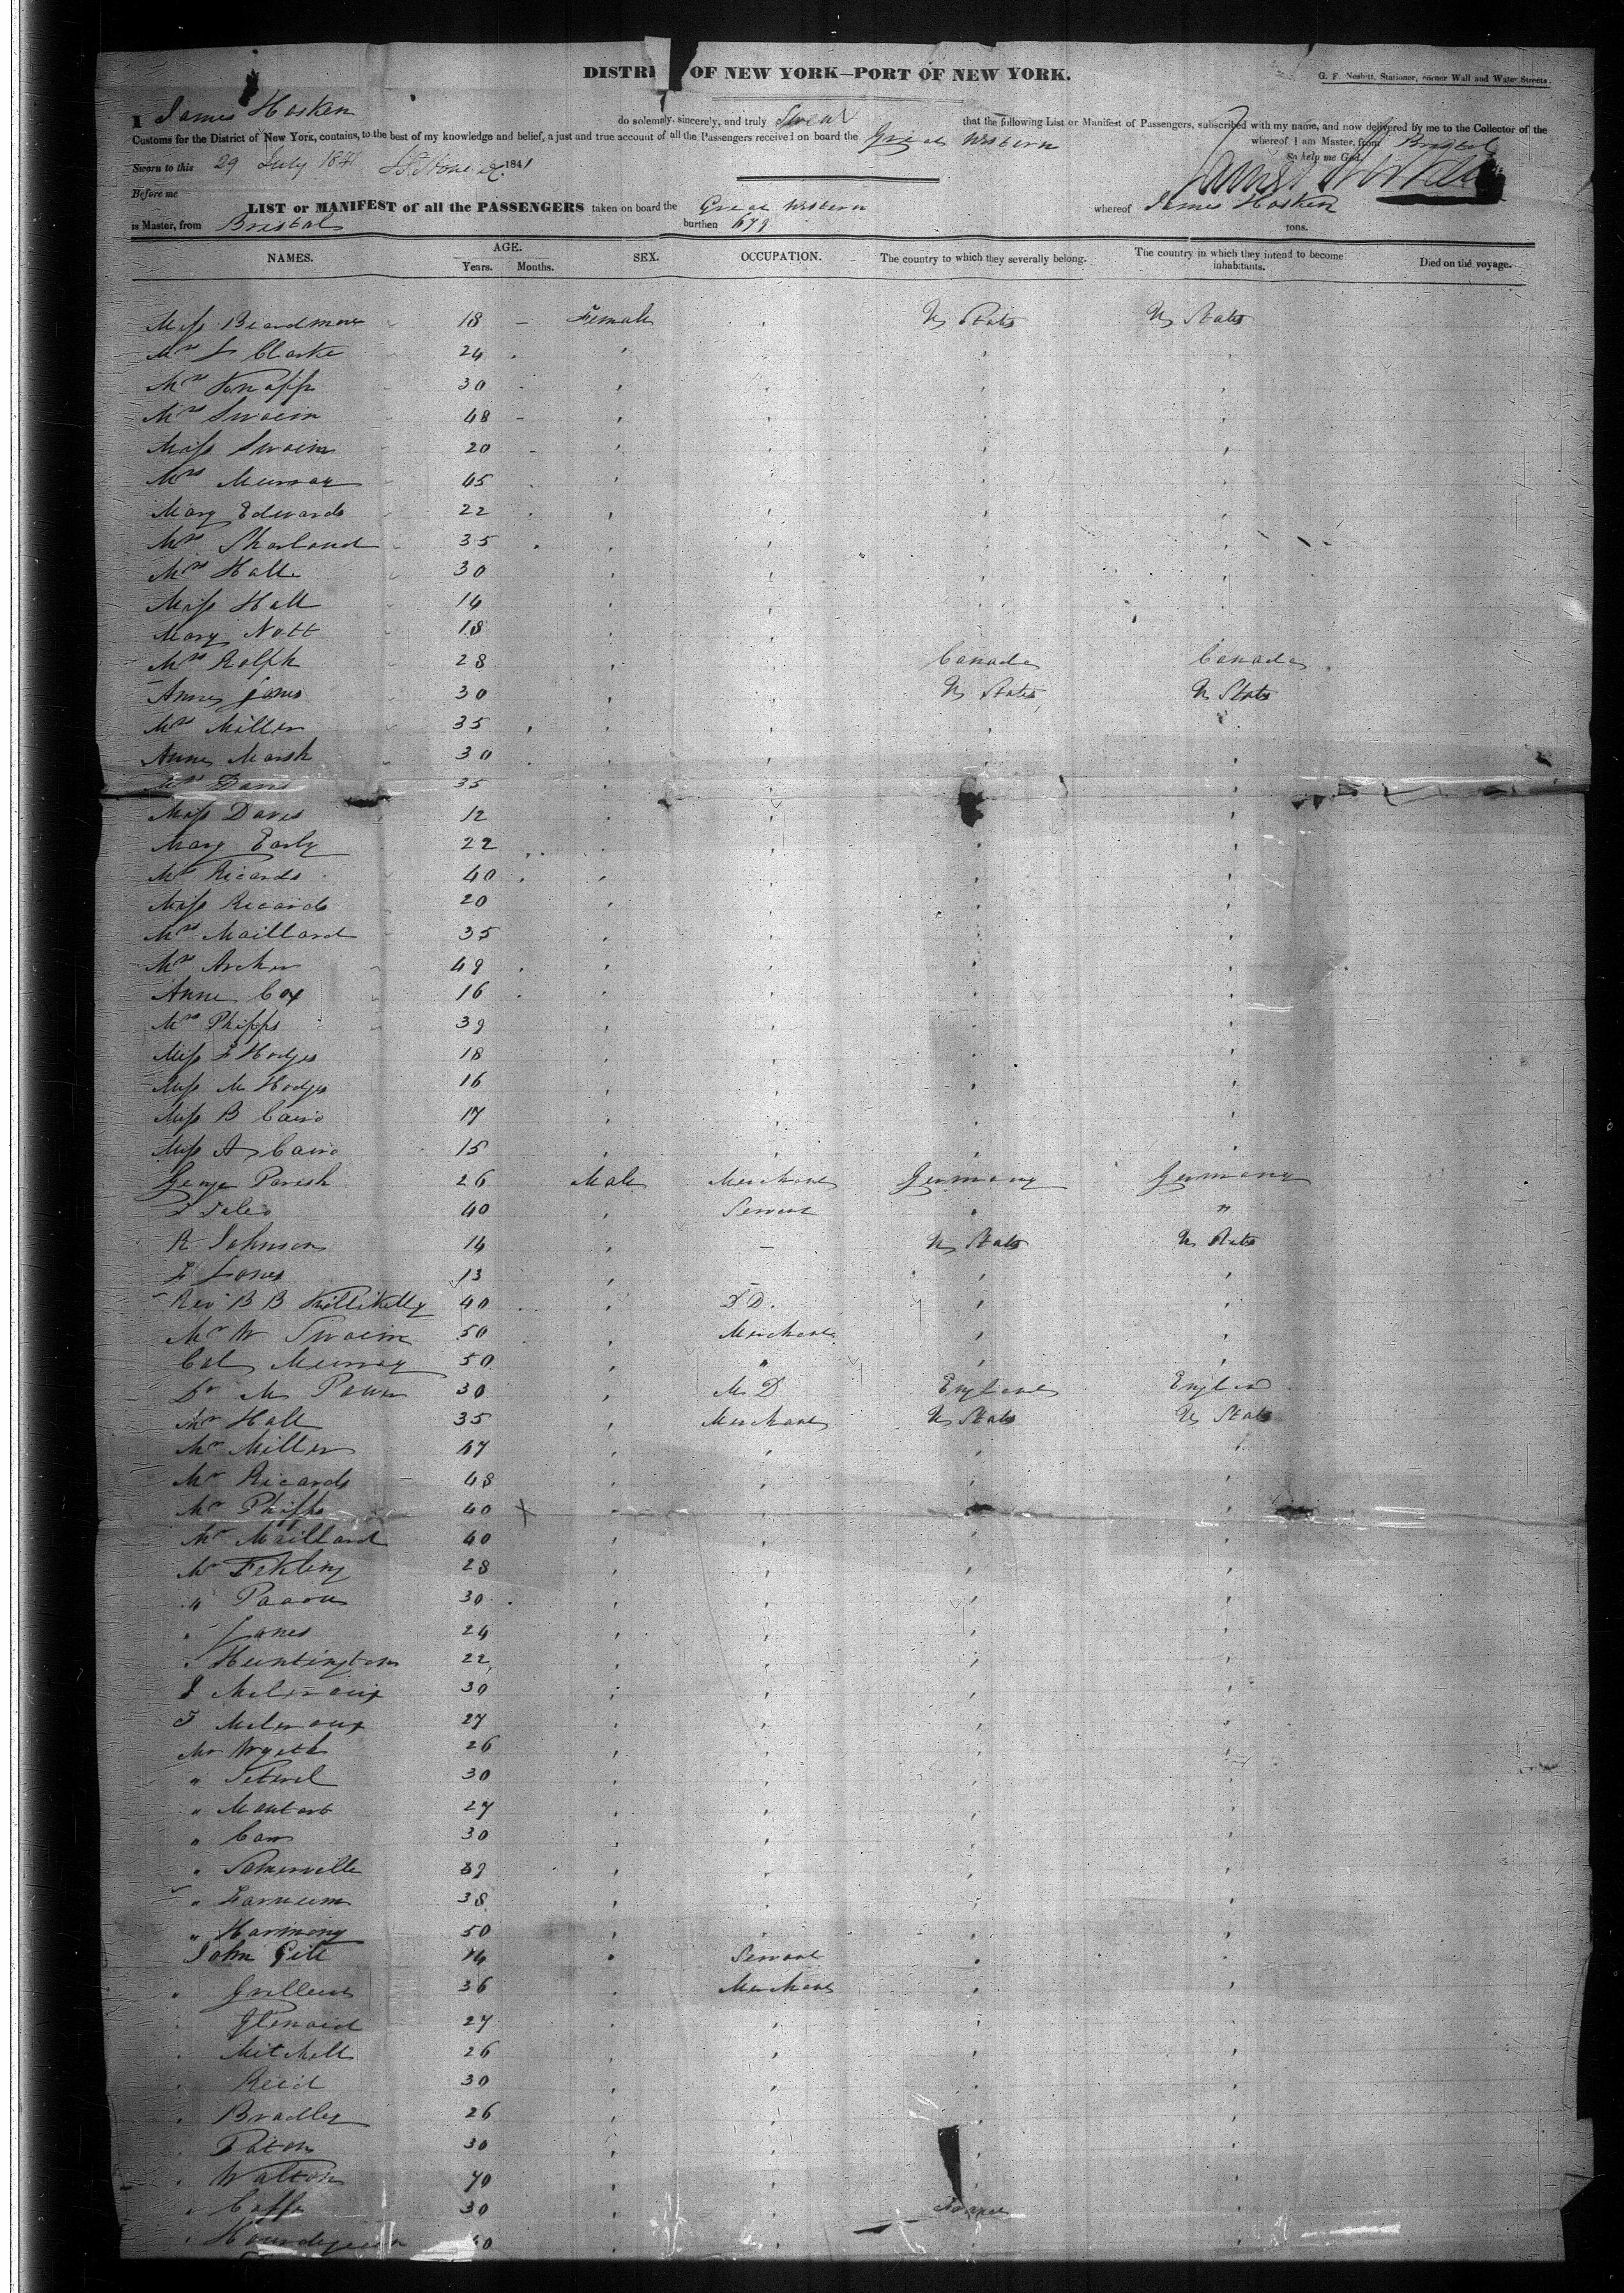 DISTRI OF NEW YORK—PORT OF NEW YORK.
G. F. Nesbitt, Stationer, corner Wall and Water Streets.
I James Hosken do solemnly, sincerely, and truly Swear that the following List or Manifest of Passengers, subscribed with my name, and now delivered by me to the Collector of the
Customs for the District of New York, contains, to the best of my knowledge and belief, a just and true account of all the Passengers received on board the Great Western whereof I am Master, from Bristol
So help me God.
Sworn to this 29 July 1841 1841
James Hosken
Before me
LIST or MANIFEST of all the PASSENGERS taken on board the Great Western whereof James Hosken
is Master, from Bristol burthen 679 tons.
NAMES. AGE. Years. Months. SEX. OCCUPATION. The country to which they severally belong. The country in which they intend to become inhabitants. Died on the voyage.
Miss Beardmore 18 – Female U States U States
Mrs L Clarke 24
Mrs Knapp 30
Mrs Swaim 48
Miss Swaim 20
Mrs Murray 45
Mary Edwards 22
Mrs Sharland 35
Mrs Hall 30
Miss Hall 14
Mary Nott 18
Mrs Rolph 28 Canada Canada
Anne Jones 30 U States U States
Mrs Miller 35
Anne Marsh 30
Mrs Davis 35
Miss Davis 12
Mary Early 22
Mrs Ricards 40
Miss Ricards 20
Mrs Maillard 35
Mrs Archer 49
Anne Cox 16
Mrs Phipps 39
Miss F Hodges 18
Miss M Hodges 16
Miss B Caird 17
Miss A Caird 15
George Parish 26 Male Merchant Germany Germany
40 Servant "
R Johnson 14 – U States U States
F Jones 13
Rev B B Killikelly 40 D D.
Mr W Swaim 50 Merchant
Col Murray 50 "
Dr M Power 30 M D England England
Mr Hall 35 Merchant U States U States
Mr Miller 47
Mr Ricards 48
Mr Phipps 40 X
Mr Maillard 40
Mr 28
" 30
" Jones 24
" Huntington 22
J Molyneux 30
T Molyneux 27
Mr Wyeth 26
" 30
" 27
" 30
" Somerville 39
" Farnum 38
" Harmony 50
John Gill 14 Servant
" 36 Merchant
" 27
" Mitchell 26
" Reid 30
" Bradley 26
" Paton 30
" Walton 40
" 30 France
" 40